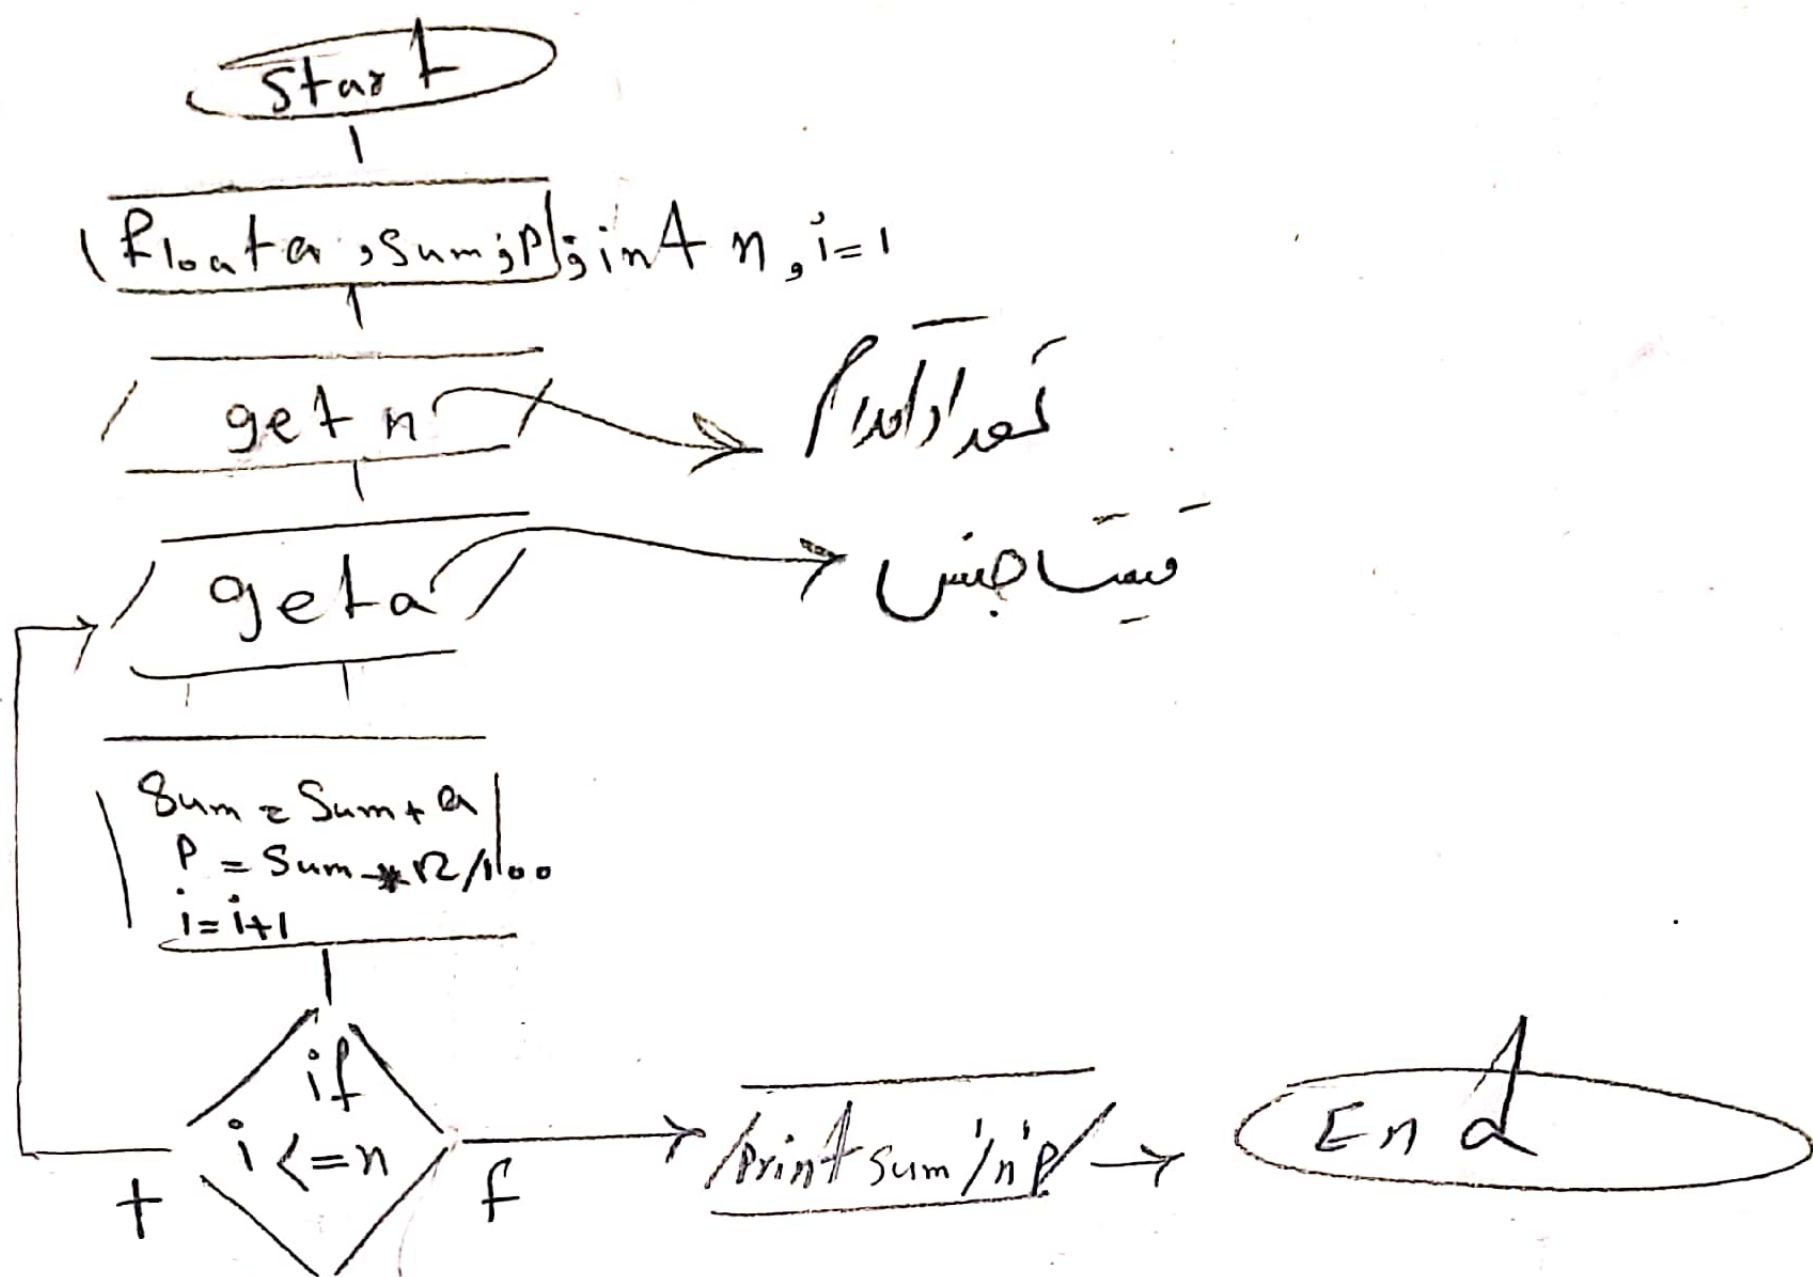 Start
float a, sum, p; int n, i=1
get n
تعداد اقدام
get a
قیمت جنس
Sum = Sum + a
P = Sum * 12/100
i = i+1
if
i <= n
t
f
print sum 'n' p
End